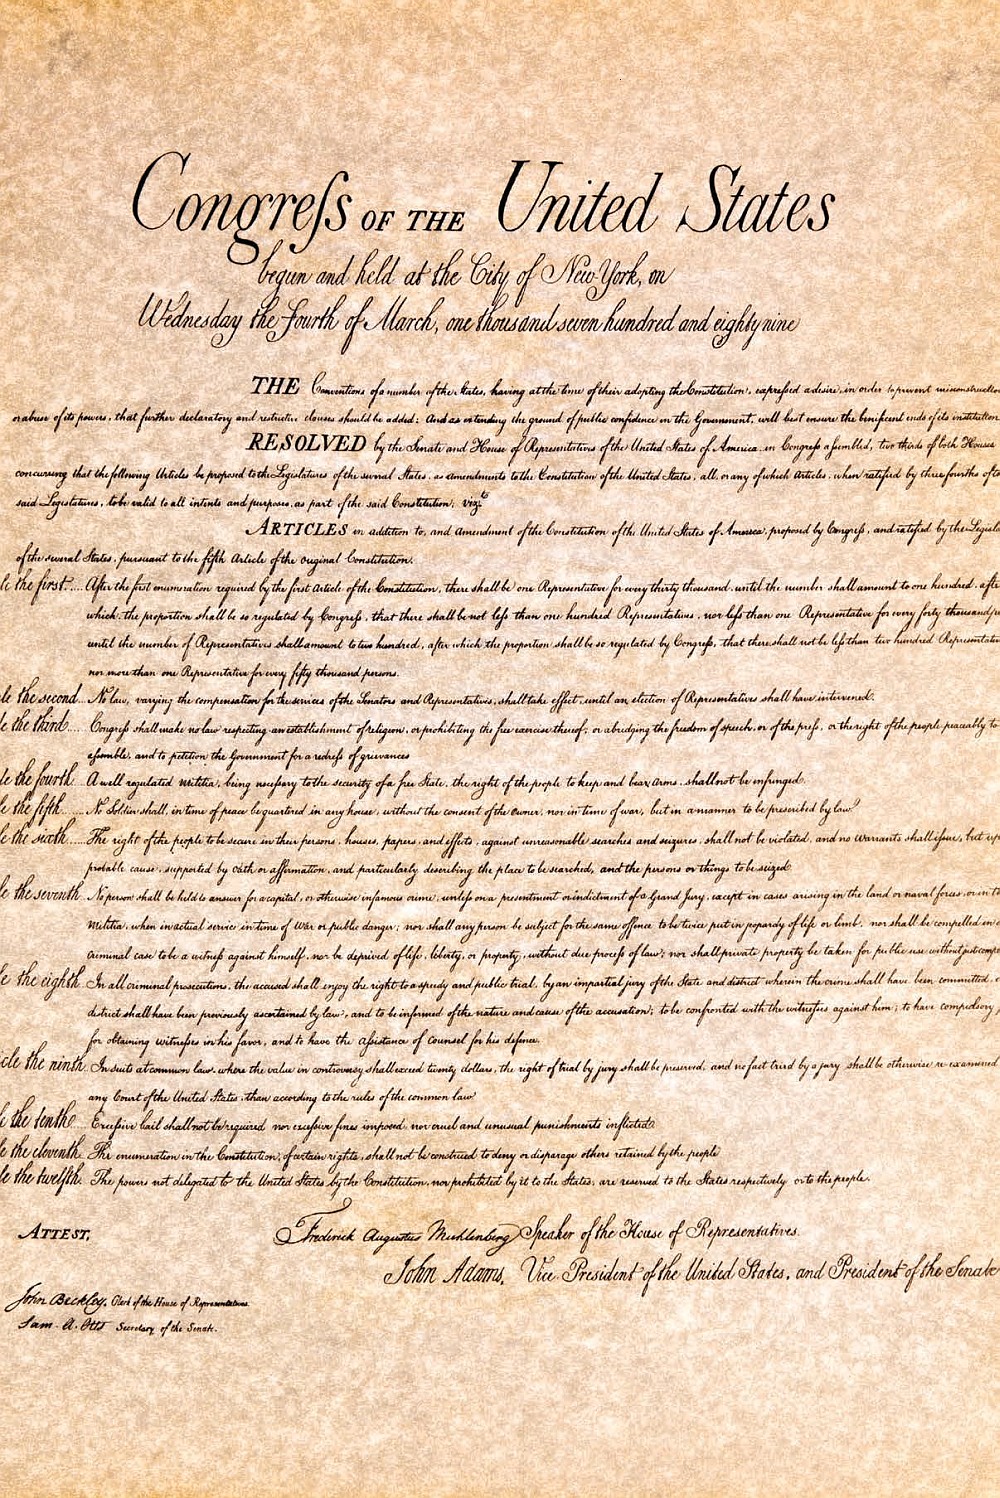 Congreſs OF THE United States
begun and held at the City of New-York, on
Wednesday the fourth of March, one thousand seven hundred and eighty nine
THE Conventions of a number of the States, having at the time of their adopting the Constitution, expreſsed a desire, in order to prevent misconstruction
or abuse of its powers, that further declaratory and restrictive clauses should be added: And as extending the ground of public confidence in the Government, will best ensure the beneficent ends of its institution
RESOLVED by the Senate and House of Representatives of the United States of America in Congreſs aſsembled, two thirds of both Houses
concurring that the following Articles be proposed to the Legislatures of the several States, as amendments to the Constitution of the United States, all, or any of which Articles, when ratified by three fourths of
said Legislatures, to be valid to all intents and purposes, as part of the said Constitution; vizt.
ARTICLES in addition to, and Amendment of the Constitution of the United States of America, proposed by Congreſs, and ratified by the
of the several States, pursuant to the fifth Article of the original Constitution.
the first.... After the first enumeration required by the first Article of the Constitution, there shall be one Representative for every thirty thousand, until the number shall amount to one hundred, after
which, the proportion shall be so regulated by Congreſs, that there shall be not leſs than one hundred Representatives, nor leſs than one Representative for every forty thousand
until the number of Representatives shall amount to two hundred, after which the proportion shall be so regulated by Congreſs, that there shall not be leſs than two hundred
nor more than one Representative for every fifty thousand persons.
the second... No law, varying the compensation for the services of the Senators and Representatives, shall take effect, until an election of Representatives shall have intervened.
the third.... Congreſs shall make no law respecting an establishment of religion, or prohibiting the free exercise thereof; or abridging the freedom of speech, or of the preſs; or the right of the people peaceably to
aſsemble, and to petition the Government for a redreſs of grievances
the fourth. A well regulated Militia, being neceſsary to the security of a free State, the right of the people to keep and bear Arms, shall not be infringed.
the fifth...... No Soldier shall, in time of peace be quartered in any house, without the consent of the Owner, nor in time of war, but in a manner to be prescribed by law.
the sixth..... The right of the people to be secure in their persons, houses, papers, and effects, against unreasonable searches and seizures, shall not be violated, and no warrants shall iſsue, but
probable cause, supported by Oath or affirmation, and particularly describing the place to be searched, and the persons or things to be seized
the seventh. No person shall be held to answer for a capital, or otherwise infamous crime, unleſs on a presentment or indictment of a Grand Jury, except in cases arising in the land or naval forces, or in
Militia, when in actual service in time of War or public danger; nor shall any person be subject for the same offence to be twice put in jeopardy of life or limb, nor shall be compelled in
criminal case to be a witneſs against himself, nor be deprived of life, liberty, or property, without due proceſs of law; nor shall private property be taken for public use without just
the eighth. In all criminal prosecutions, the accused shall enjoy the right to a speedy and public trial, by an impartial jury of the State and district wherein the crime shall have been committed,
district shall have been previously ascertained by law, and to be informed of the nature and cause of the accusation; to be confronted with the witneſses against him; to have compulsory
for obtaining witneſses in his favor, and to have the aſsistance of counsel for his defence.
the ninth. In suits at common law, where the value in controversy shall exceed twenty dollars, the right of trial by jury shall be preserved, and no fact tried by a jury shall be otherwise re-examined
any Court of the United States, than according to the rules of the common law
the tenth.. Exceſsive bail shall not be required nor exceſsive fines imposed, nor cruel and unusual punishments inflicted.
the eleventh. The enumeration in the Constitution, of certain rights, shall not be construed to deny or disparage others retained by the people
the twelfth. The powers not delegated to the United States by the Constitution, nor prohibited by it to the States, are reserved to the States respectively or to the people.
ATTEST,
Frederick Augustus Muhlenberg Speaker of the House of Representatives.
John Adams, Vice-President of the United States, and President of the Senate
John Beckley, Clerk of the House of Representatives.
Sam. A. Otis Secretary of the Senate.